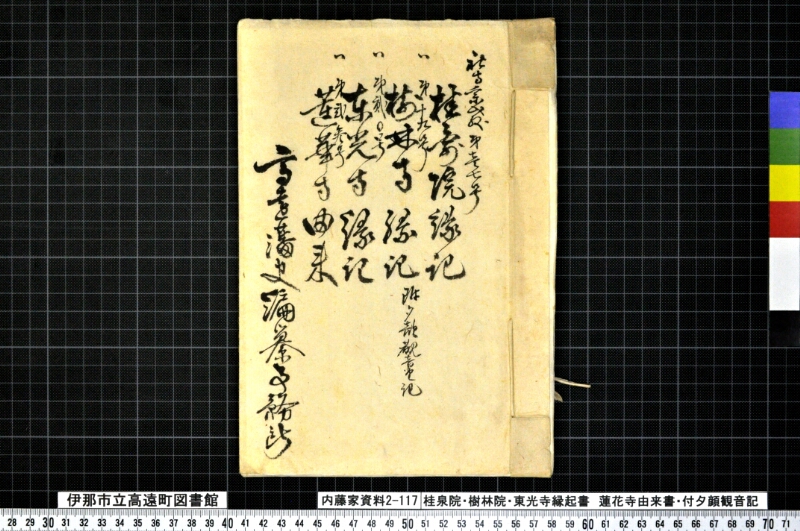 社寺第七号
桂泉院縁記
〃 第十九号
樹林寺縁記
附夕顔観音記
〃 第弐〇号
東光寺縁記
〃 第弐参号
蓮華寺由来
高遠藩史編纂事務所
伊那市立高遠町図書館
内藤家資料2-117 桂泉院・樹林院・東光寺縁起書 蓮花寺由来書・付夕顔観音記
28 29 30 31 32 33 34 35 36 37 38 39 40 41 42 43 44 45 46 47 48 49 50 51 52 53 54 55 56 57 58 59 60 61 62 63 64 65 66 67 68 69 70 71